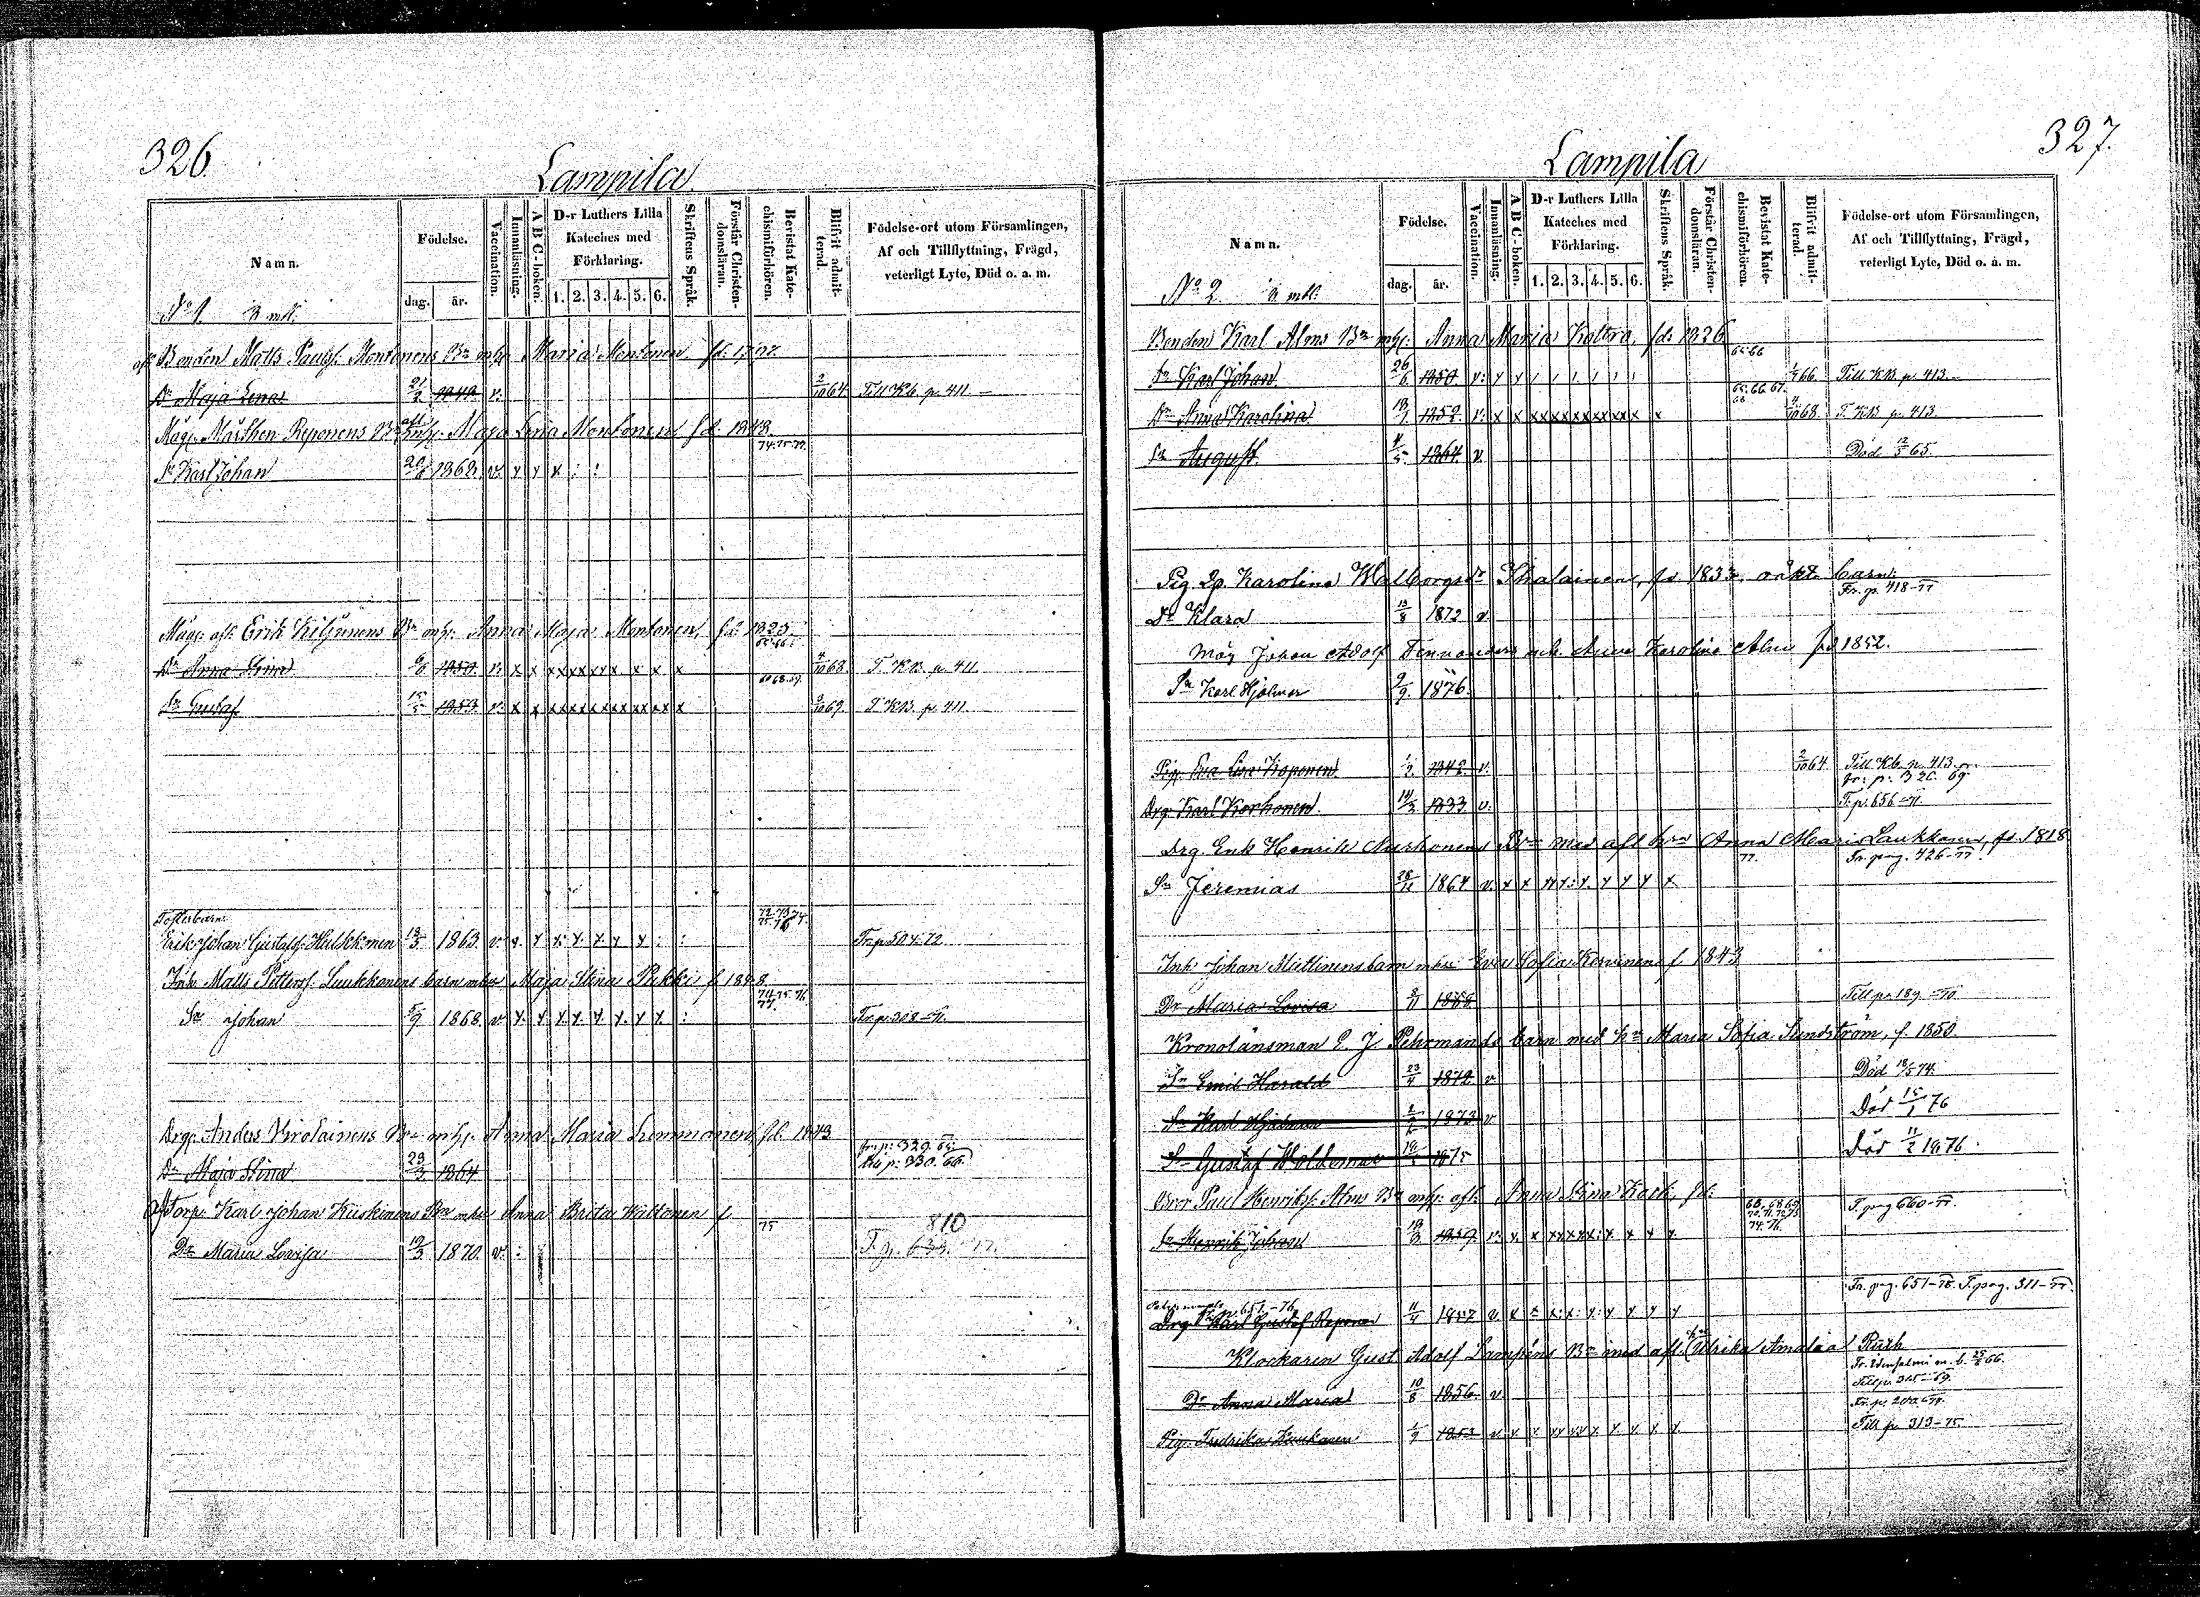 326
Lampila
Namn.
Födelse.
dag. år.
Vaccination.
Innanläsning.
A B C-boken.
D-r Luthers Lilla Kateches med Förklaring.
1. 2. 3. 4. 5. 6.
Skriftens Språk.
Förstår Christendomsläran.
Bevistat Katechismiförhören.
Blifvit admitterad.
Födelse-ort utom Församlingen, Af och Tillflyttning, Frägd, veterligt Lyte, Död o. a. m.
No 1.
Bonden Matts Paulss. Montonens Bn mhu Maria Montonen fd.
Dr Maja Lena v. 2/10 64. Till Kb. p. 411.
Måg. Mårthen Reponens Maja Lena Montonen fd. 1843
74. 75. 77.
Sn Karl Johan 1868. v. x x x
Måg. afl. Erik Kiljunens Bn mhu Anna Maja Montonen, fd. 1825.
65. 66.
Dr Anna Lena 6/6 1850. v. x x x x x x x x x x 4/10 68. T. KB. p. 411.
Sn Gustaf 1853 v. x x x x x x x x x x 3/10 69. T KB. p. 411.
Fosterbarn:
72. 73. 74. 75. 76
Erik Johan Gustafss. Hulkkonen 13/5 1863. v. x. x x. x. x x x Fr. p. 504-72
Inh. Matts Petterss. Luukkonens barn mhu Maja Stina Pukki f.
74. 75. 76. 77.
Sn Johan 5/9 1868. v x. x x. x. x x. x x. Fr. p. 308-71.
Drg. Anders Virolainens Bn mhu Anna Maria Lemmonen fd. 1843
fr. p. 329
Dr Maja Stina 23/3 1864 p. 330. 66.
af Torp. Karl Johan Kuskinens Bn mhu Anna Brita Kiltonen f.
75
810
Dr Maria Lovisa 19/3 1870. v.
327.
Lampila
Namn.
Födelse.
dag. år.
Vaccination.
Innanläsning.
A B C-boken.
D-r Luthers Lilla Kateches med Förklaring.
1. 2. 3. 4. 5. 6.
Skriftens Språk.
Förstår Christendomsläran.
Bevistat Katechismiförhören.
Blifvit admitterad.
Födelse-ort utom Församlingen, Af och Tillflyttning, Frägd, veterligt Lyte, Död o. a. m.
No 2.
Bonden Karl Alms Bn mhu Anna Maria Koltra, fd. 1826
65. 66
Sn Karl Johan 26/6 1850. v. Till KB. p. 413.
65. 66. 67. 68.
Dr Anna Karolina 1852. v. x x x x x x x x x x x 4/10 68. T. KB p. 413.
Sn August 1864. v. Död 12/3 65.
Pig. Lp. Karolina Walborgsdr Ihalainens, fd. 1833, oäkt. barn:
Fr. p. 418-77
Dr Klara 13/8 1872 v.
Måg Johan Adolf Tennanders och Anna Karolina Alm fd 1852.
Sn Karl Hjalmar 9/9 1876.
Pig. Eva Lisa Koponen 1/2 1842 v. 2/10 64. Till Kb. p. 413.
fr. p. 320. 69.
Drg. Karl Korhonen 14/3 1833 v. T. p. 656-71.
Drg. Enk. Henrik Nurhonens Bn med afl. hu Anna Maria Laukkanen, fd. 1818
77. Fr. pag. 426-77.
Sn Jeremias 28/11 1864 v. x x x x x. x. x x x x.
Inh. Johan Miettinens barn mhu Eva Sofia Korvinen f. 1843
Dr Maria Lovisa 8/11 Till p. 189-70.
Kronolänsman E. J. Pehrmans barn med hu Maria Sofia Sundström, f. 1850.
Sn Emil Harald 23/4 1872 v Död 74.
Sn Karl Hjalmar 1873 v. Död 15/1 76
Sn Gustaf Woldemar 1875 Död 11/2 1876.
Paul Henrikss. Alms Bn mhu afl. Anna Stina Kack, fd.
T. pag 660-77.
Sn Henrik Johan 18/3 1859. v. x. x x x x x. x x x x.
Fr. pag. 651-76. T. pag. 311-77.
p. 651-76
Drg. Karl Gustaf Reponen 11/4 1857 v x x x. x. x. x x x x
Klockaren Gust. Adolf Lampéns Bn med afl. hu Ulrika Amalia Ruth
Fr. Idensalmi m. b. 25/8 66.
Till p. 315-69.
Dr Anna Maria 10/8 1856 v.
Fr. p. 200-74.
Pig. Fredrika Kuukanen 1853 v x x x x x x x x x x x Till p. 313-75.